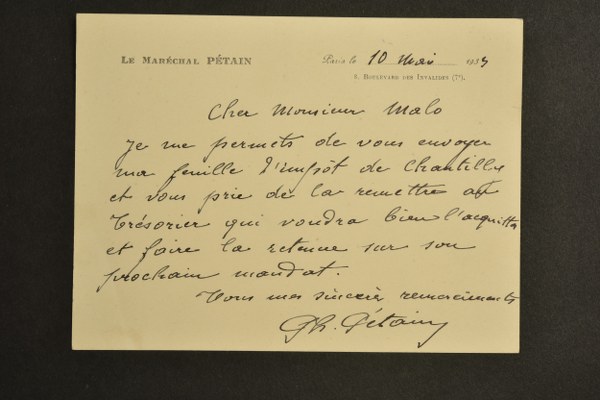 LE MARÉCHAL PÉTAIN
Paris le 10 Mai 1935
8, BOULEVARD DES INVALIDES (7e).
Cher Monsieur Malo
Je me permets de vous envoyer
ma feuille d'impôt de Chantilly
et vous prie de la remettre au
Trésorier qui voudra bien l'acquitter
et faire la retenue sur son
prochain mandat.
Tous mes sincères remerciements
Ph. Pétain